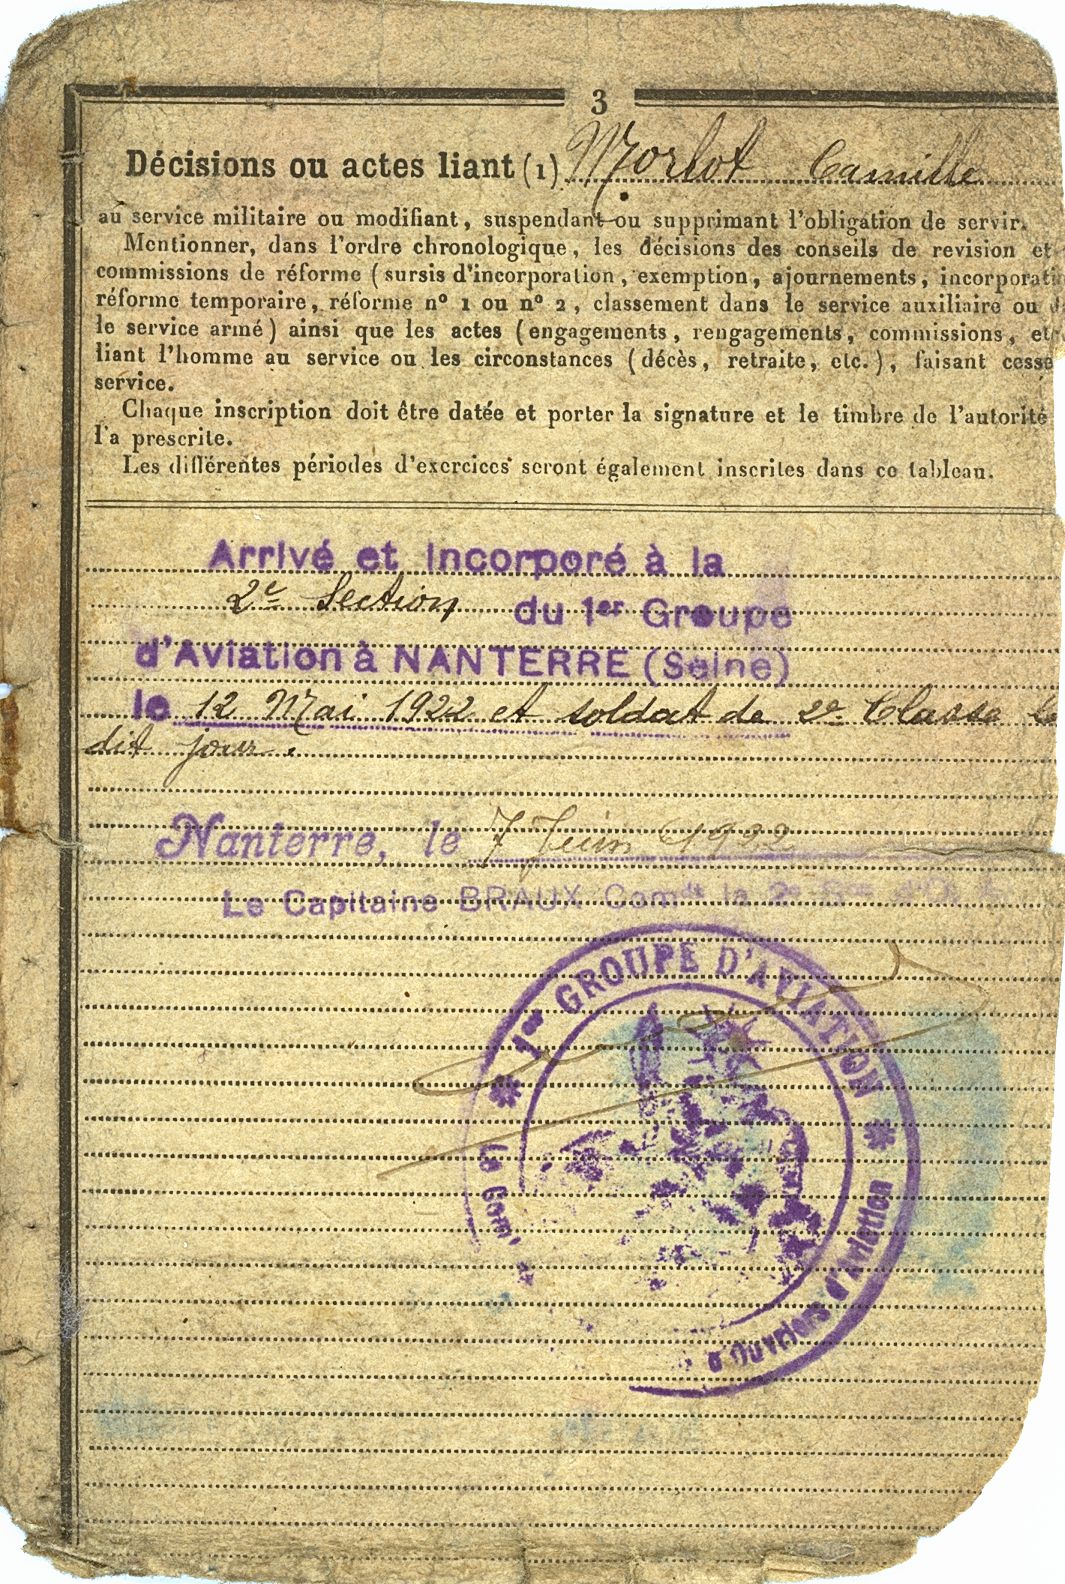 3
Décisions ou actes liant (1) Morlot Camille
au service militaire ou modifiant, suspendant ou supprimant l'obligation de servir.
Mentionner, dans l'ordre chronologique, les décisions des conseils de revision et
commissions de réforme (sursis d'incorporation, exemption, ajournements, incorporati
réforme temporaire, réforme nº 1 ou nº 2, classement dans le service auxiliaire ou d
le service armé) ainsi que les actes (engagements, rengagements, commissions, etc
liant l'homme au service ou les circonstances (décès, retraite, etc.), faisant cesse
service.
Chaque inscription doit être datée et porter la signature et le timbre de l'autorité
l'a prescrite.
Les différentes périodes d'exercices seront également inscrites dans ce tableau.
Arrivé et incorporé à la
2e Section du 1er Groupe
d'Aviation à NANTERRE (Seine)
le 12 Mai 1922 et soldat de 2e Classe le
dit jour.
Nanterre, le 7 Juin 1922
Le Capitaine BRAUX Comdt la 2e
1er GROUPE D'AVIATION
Le Com
d'Ouvriers d'Aviation